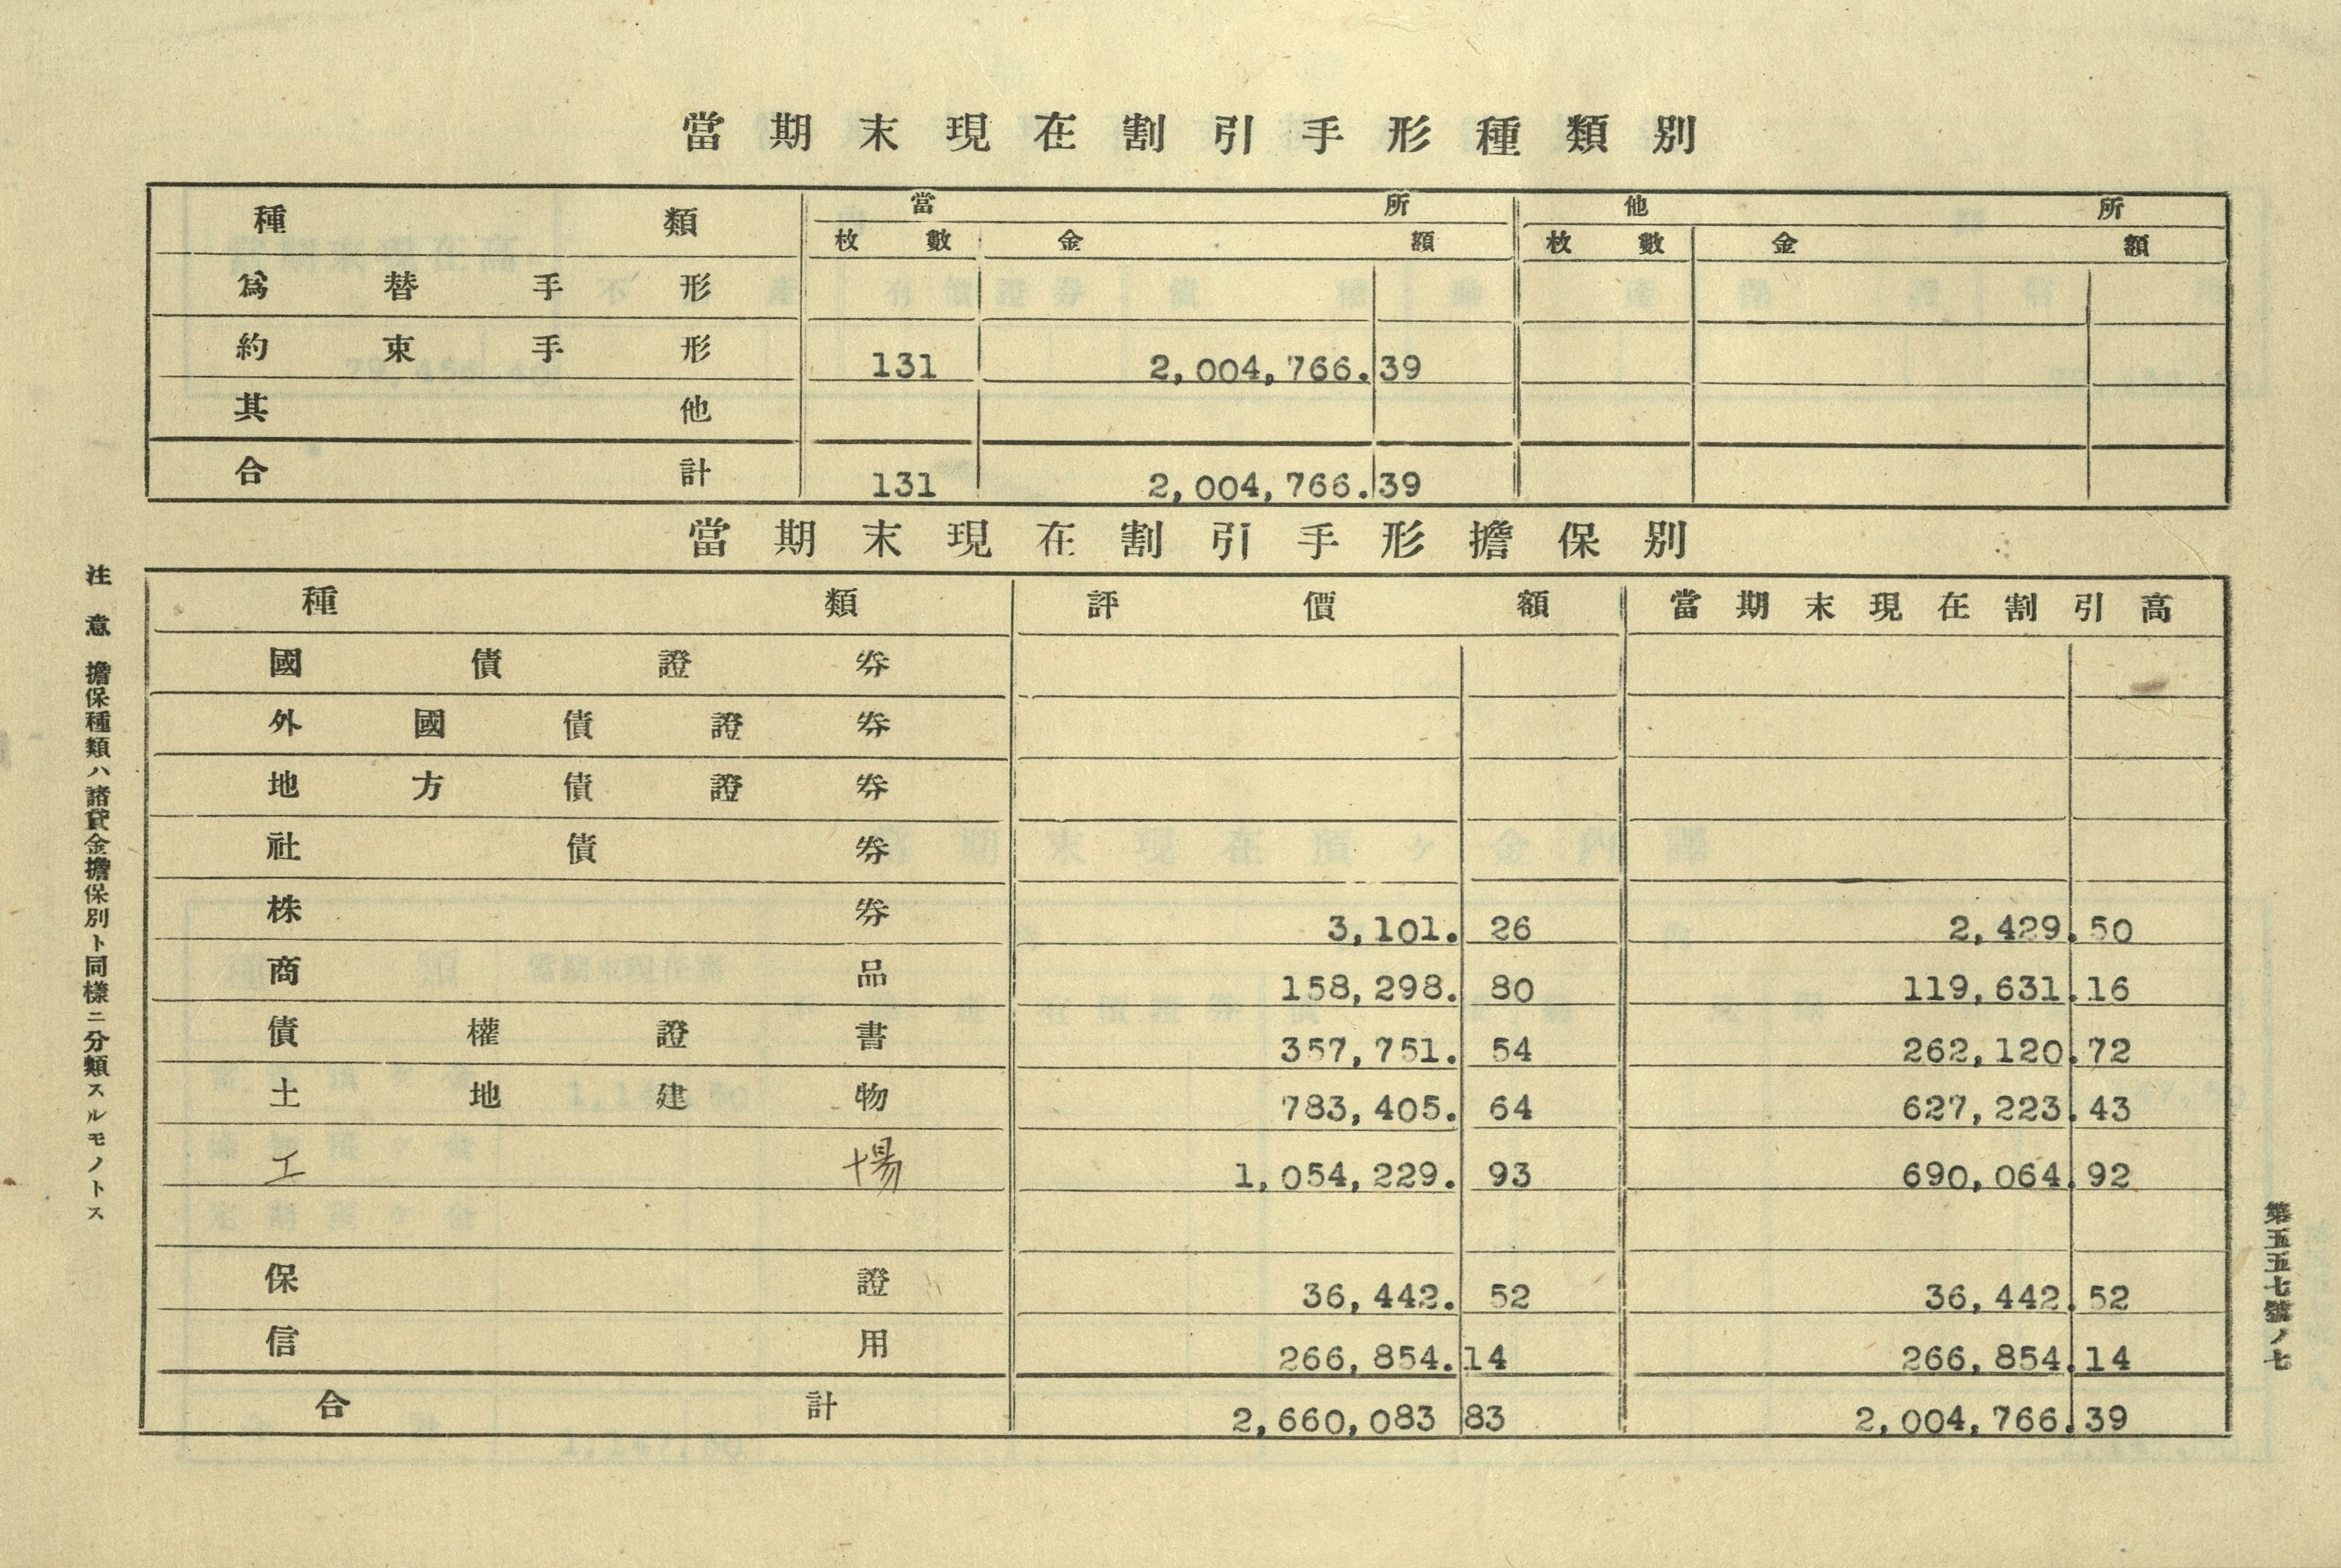 當期末現在割引手形種類別
種類 當所 他所
枚數 金額 枚數 金額
爲替手形
約束手形 131 2,004,766.39
其他
合計 131 2,004,766.39
當期末現在割引手形擔保別
種類 評價額 當期末現在割引高
國債證券
外國債證券
地方債證券
社債券
株券 3,101.26 2,429.50
商品 158,298.80 119,631.16
債權證書 357,751.54 262,120.72
土地建物 783,405.64 627,223.43
工場 1,054,229.93 690,064.92
保證 36,442.52 36,442.52
信用 266,854.14 266,854.14
合計 2,660,083 83 2,004,766.39
注意 擔保種類ハ諸貸金擔保別ト同樣ニ分類スルモノトス
第五五七號ノ七